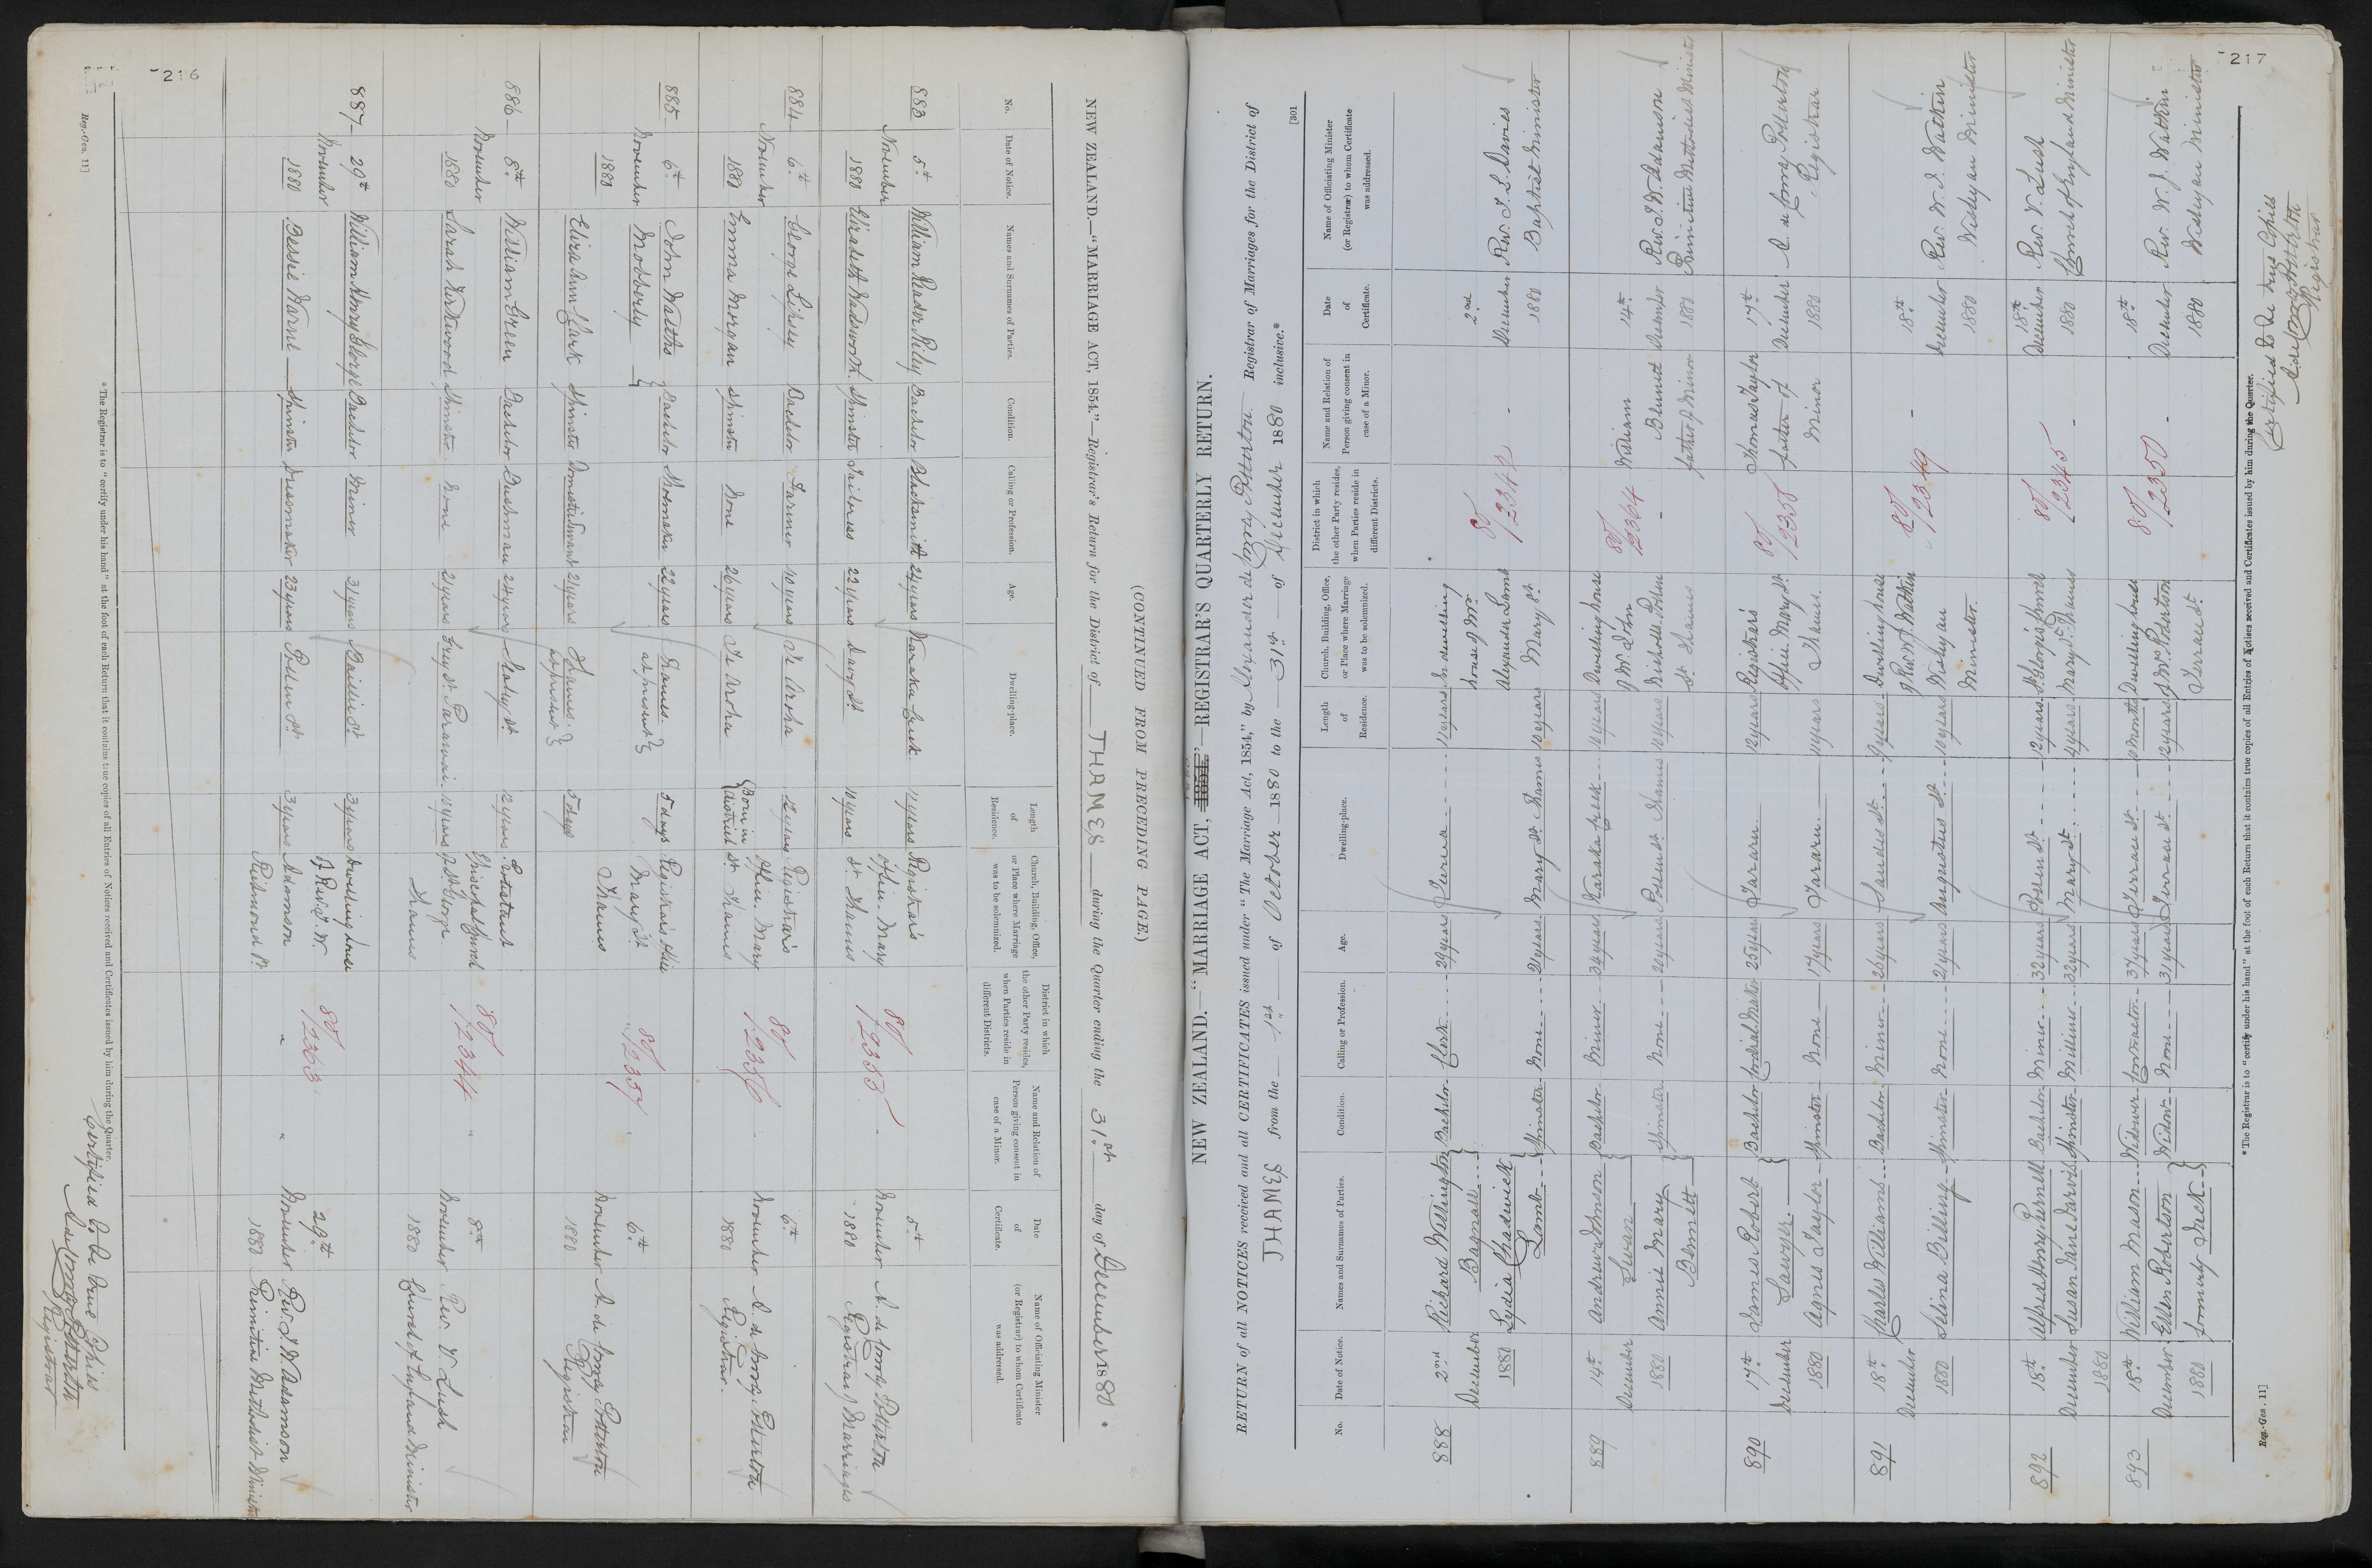 216
NEW ZEALAND.—"MARRIAGE ACT, 1854."—Registrar's Return for the District of THAMES during the Quarter ending the 31st day of December 1880 *
(CONTINUED FROM PRECEDING PAGE.)
No. Date of Notice. Names and Surnames of Parties. Condition. Calling or Profession. Age. Dwelling-place. Length of Residence. Church, Building, Office, or Place where Marriage was to be solemnized. District in which the other Party resides, when Parties reside in different Districts. Name and Relation of Person giving consent in case of a Minor. Date of Certificate. Name of Officiating Minister (or Registrar) to whom Certificate was addressed.
883 5th November 1880
William Reador Rily Bachelor Blacksmith 24 years Karaka Creek. 11 years
Elizabeth Wadsworth. Spinster Tailoress 22 years Davy St. 10 years
Registrar's Office Mary St. Thames
80/2355
5th November 1880
A. de Lomej Potterton Registrar Marriages
884 6th November 1880
George Lipsey Bachelor Farmer 40 years Te Aroha 12 years
Emma Morgan Spinster None 26 years Te Aroha Born in district
Registrar's Office Mary St. Thames
80/2356
6th November 1880
A. de Lomej Potterton Registrar.
885 6th November 1880
John Walths Mobberly Bachelor Shoemaker 22 years Thames. at present 5 days
Eliza Ann Clark Spinster Domestic Servant 21 years Thames. at present 5 days
Registrar's Office Mary St. Thames
80/2357
6th November 1880
A. de Lomej Potterton Registrar
886 8th November 1880
William Green Bachelor Bushman 24 years Sealey St. 12 years
Sarah Kirkwood Spinster None 21 years Grey St. Parawai. 10 years
Protestant Episcopal Church of St. George Thames
80/2344
8th November 1880
Rev. V Lush Church of England Minister
887 29th November 1880
William Henry George Bachelor Miner 31 years Baillie St. 3 years
Bessie Warne Spinster Dressmaker 23 years Pollen St. 3 years
Dwelling house of Rev. J. W. Adamson Richmond St.
80/2363
29th November 1880
Rev. J. W. Adamson Primitive Methodist Minister
Certified to be true Copies
A. de Lomej Potterton
Registrar
* The Registrar is to "certify under his hand" at the foot of each Return that it contains true copies of all Entries of Notices received and Certificates issued by him during the Quarter.
Reg.-Gen. 11]
217
NEW ZEALAND.—"MARRIAGE ACT, 1854."—REGISTRAR'S QUARTERLY RETURN.
RETURN of all NOTICES received and all CERTIFICATES issued under "The Marriage Act, 1854," by Alexander de Lomej Potterton Registrar of Marriages for the District of
THAMES from the 1st of October 1880 to the 31st of December 1880 inclusive.*
[301
No. Date of Notice. Names and Surnames of Parties. Condition. Calling or Profession. Age. Dwelling-place. Length of Residence. Church, Building, Office, or Place where Marriage was to be solemnized. District in which the other Party resides, when Parties reside in different Districts. Name and Relation of Person giving consent in case of a Minor. Date of Certificate. Name of Officiating Minister (or Registrar) to whom Certificate was addressed.
888 2nd December 1880
Richard Wellington Bagnall Bachelor Clerk 29 years Turua 11 years
Lydia Chadwick Lamb Spinster None 21 years Mary St. Thames 10 years
In dwelling house of Mr. Alexander Lamb Mary St.
80/2342
2nd December 1880
Rev. J. L. Davies Baptist Minister
889 14th December 1880
Andrew Johnson Swan Bachelor Miner 34 years Karaka Creek 10 years
Annie Mary Blewitt Spinster None 20 years Pollen St. Thames 10 years
Dwelling house of Wm. Lön Nicholls Pollen St. Thames
80/2364
William Blewitt father of Minor
14th December 1880
Rev. J. W. Adamson Primitive Methodist Minister
890 17th December 1880
James Robert Sawyer. Bachelor Cordial Maker 25 years Tararu 12 years
Agnes Taylor Spinster None 17 years Tararu 11 years
Registrar's Office Mary St. Thames.
80/2358
Thomas Taylor father of Minor
17th December 1880
A. de Lomej Potterton Registrar
891 18th December 1880
Charles Williams Bachelor Miner 26 years Sandes St. 9 years
Selina Billing Spinster None 21 years Augustus St. 10 years
Dwelling house of Rev. W. J. Watkin Wesleyan Minister.
80/2349
18th December 1880
Rev. W. J. Watkin Wesleyan Minister
892 18th December 1880
Alfred Henry Purnell Bachelor Miner 32 years Pollen St. 12 years
Susan Jane Jarvis Spinster Milliner 32 years Mary St. 4 years
St. George's Church Mary St. Thames
80/2345
18th December 1880
Rev. V. Lush Church of England Minister
893 18th December 1880
William Mason Widower Contractor 37 years Terrace St. 10 months
Ellen Robertson formerly Jack Widow None 31 years Terrace St. 12 years
Dwelling house of Mrs. Robertson Terrace St.
80/2350
18th December 1880
Rev. W. J. Watkin Wesleyan Minister
Certified to be true Copies
A. de Lomej Potterton
Registrar
* The Registrar is to "certify under his hand" at the foot of each Return that it contains true copies of all Entries of Notices received and Certificates issued by him during the Quarter.
Reg.-Gen. 11]